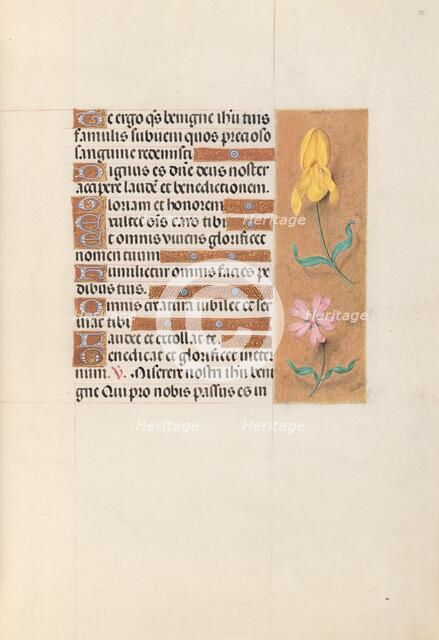 Te ergo qs benigne ihu tuis
famulis subueni quos precioso
sanguine redemisti
Dignus es dne deus noster
accipere laude et benedictionem.
Gloriam et honorem
multe sis caris tibi
Et omnis viuens glorificet
nomen tuum
Humilietur omnis facies pe
dibus tuis.
Omnis creatura iubilet et ser
uiat tibi
Laudet et extollat te
benedicat et glorificet in eter
num. V. Miserere nostri ihu beni
gne Qui pro nobis passus es in
Heritage
Heritage
Heritage
Heritage
Heritage
Heritage
Heritage